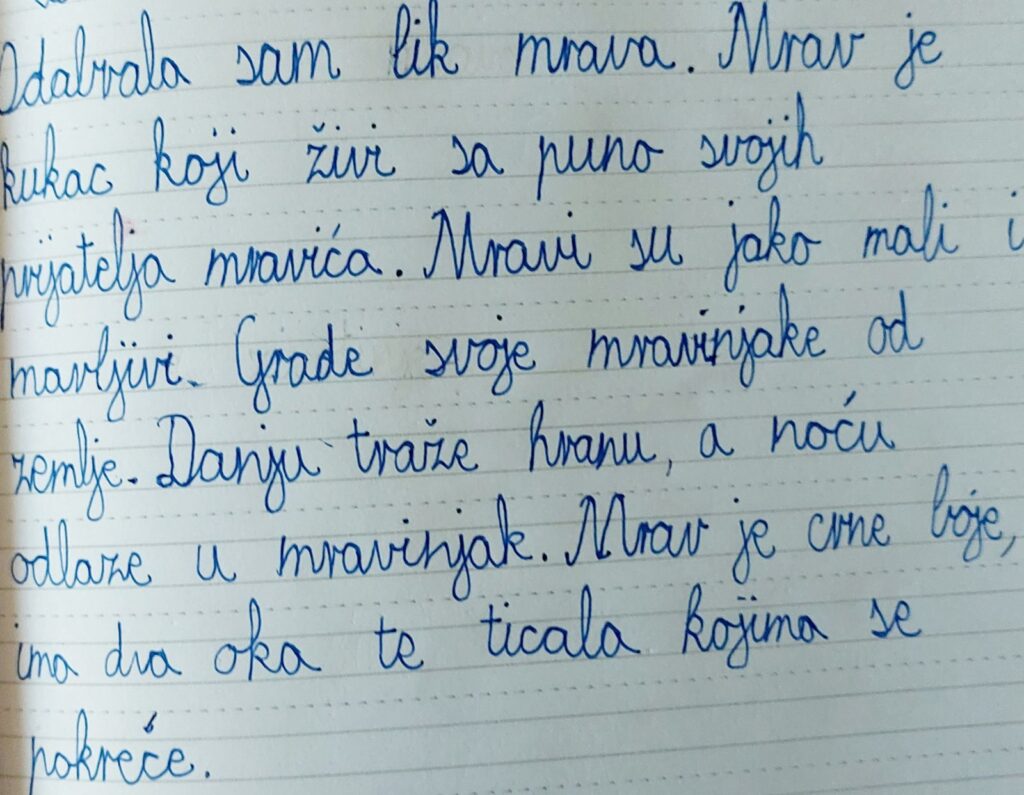 Odabrala sam lik mrava. Mrav je
kukac koji živi sa puno svojih
prijatelja mravića. Mravi su jako mali i
marljivi. Grade svoje mravinjake od
zemlje. Danju traže hranu, a noću
odlaze u mravinjak. Mrav je crne boje,
ima dva oka te ticala kojima se
pokreće.